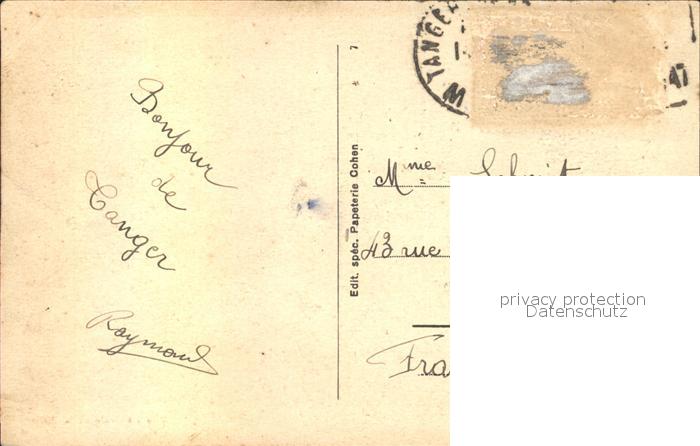 Bonjour
de
Tanger
Raymond
Edit. spéc. Papeterie Cohen
7
TANGE
Mme
43 rue
Fra
privacy protection
Datenschutz